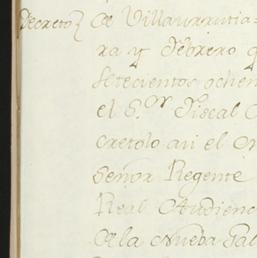 Decreto} de Villaurrutia=
ra y Febrero
setecientos ochen
el S.or Fiscal
cretolo asi el
Señor Regente
Real Audienc
de la Nueba Gal